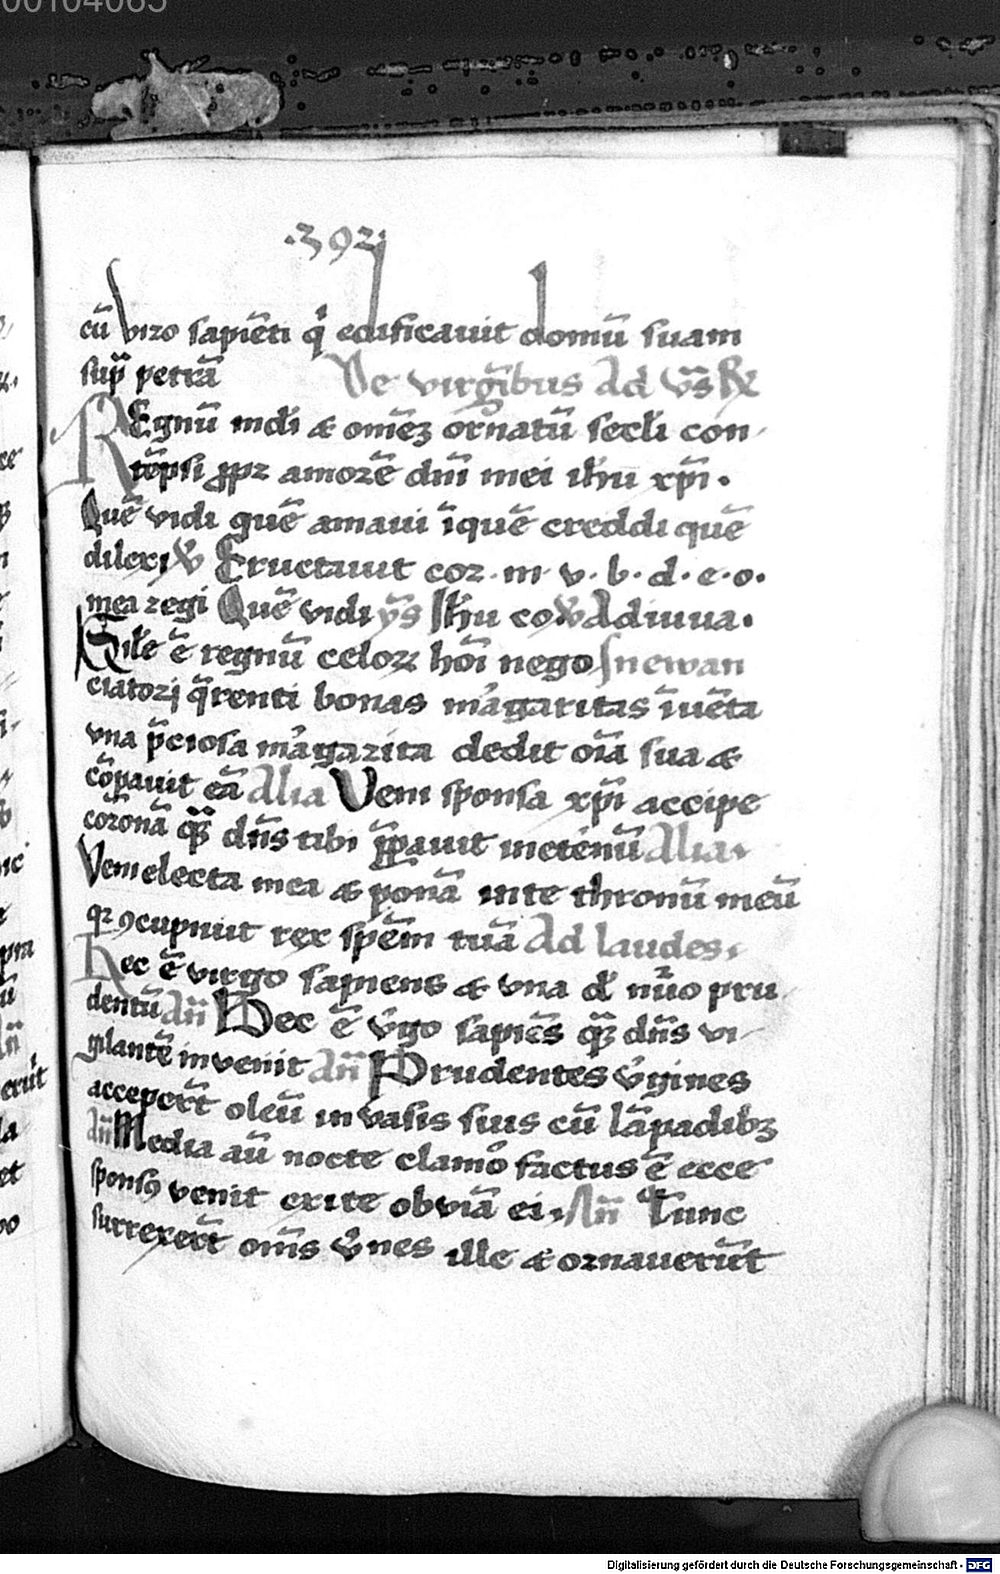 00104065
.392.
cū viro sapiēti q̇ edificauit domū suam
sup̄ petrā De virgībus Ad vīs R̸
REgnū mdī & om̄ēz ornatū secl̄i con-
tēpsi ꝓpꝛ amorē dn̄i mei ih̄u xp̄i.
Quē vidi quē amaui īquē creddi quē
dilexi V̸ Eructauit cor. m. v. b. d. e. o.
mea regi Quē vidi v̄s Ih̄u co V̸ Adiuua.
Sil̄e ē regnū celoꝝ hōi nego In ewan
ciatori q̄renti bonas m̄agaritas īuēta
vna p̄ciosa m̄agarita dedit oīa sua &
cōpauit eā Alia Veni sponsa xp̄i accipe
coronā quā dn̄s tibi p̄pauit inetenū Alia.
Veni electa mea & ponā inte thronū meū
qꝛ ꝯcupiuit rex spēm tuā Ad laudes.
Hec ē virgo sapiens & vna d̄ nūo pru-
dentū An̄ Hec ē v̄go sapiēs quā dn̄s vi-
gilantē invenit An̄ Prudentes v̄gines
acceper̄t oleū in vasis suis cū lāpadibꝫ
An̄ Media aū nocte clamō factus ē ecce
sponsꝰ venit exite obviā ei. An̄ Tunc
surrexer̄t om̄s v̄nes ille & ornauerūt
Digitalisierung gefördert durch die Deutsche Forschungsgemeinschaft - DFG